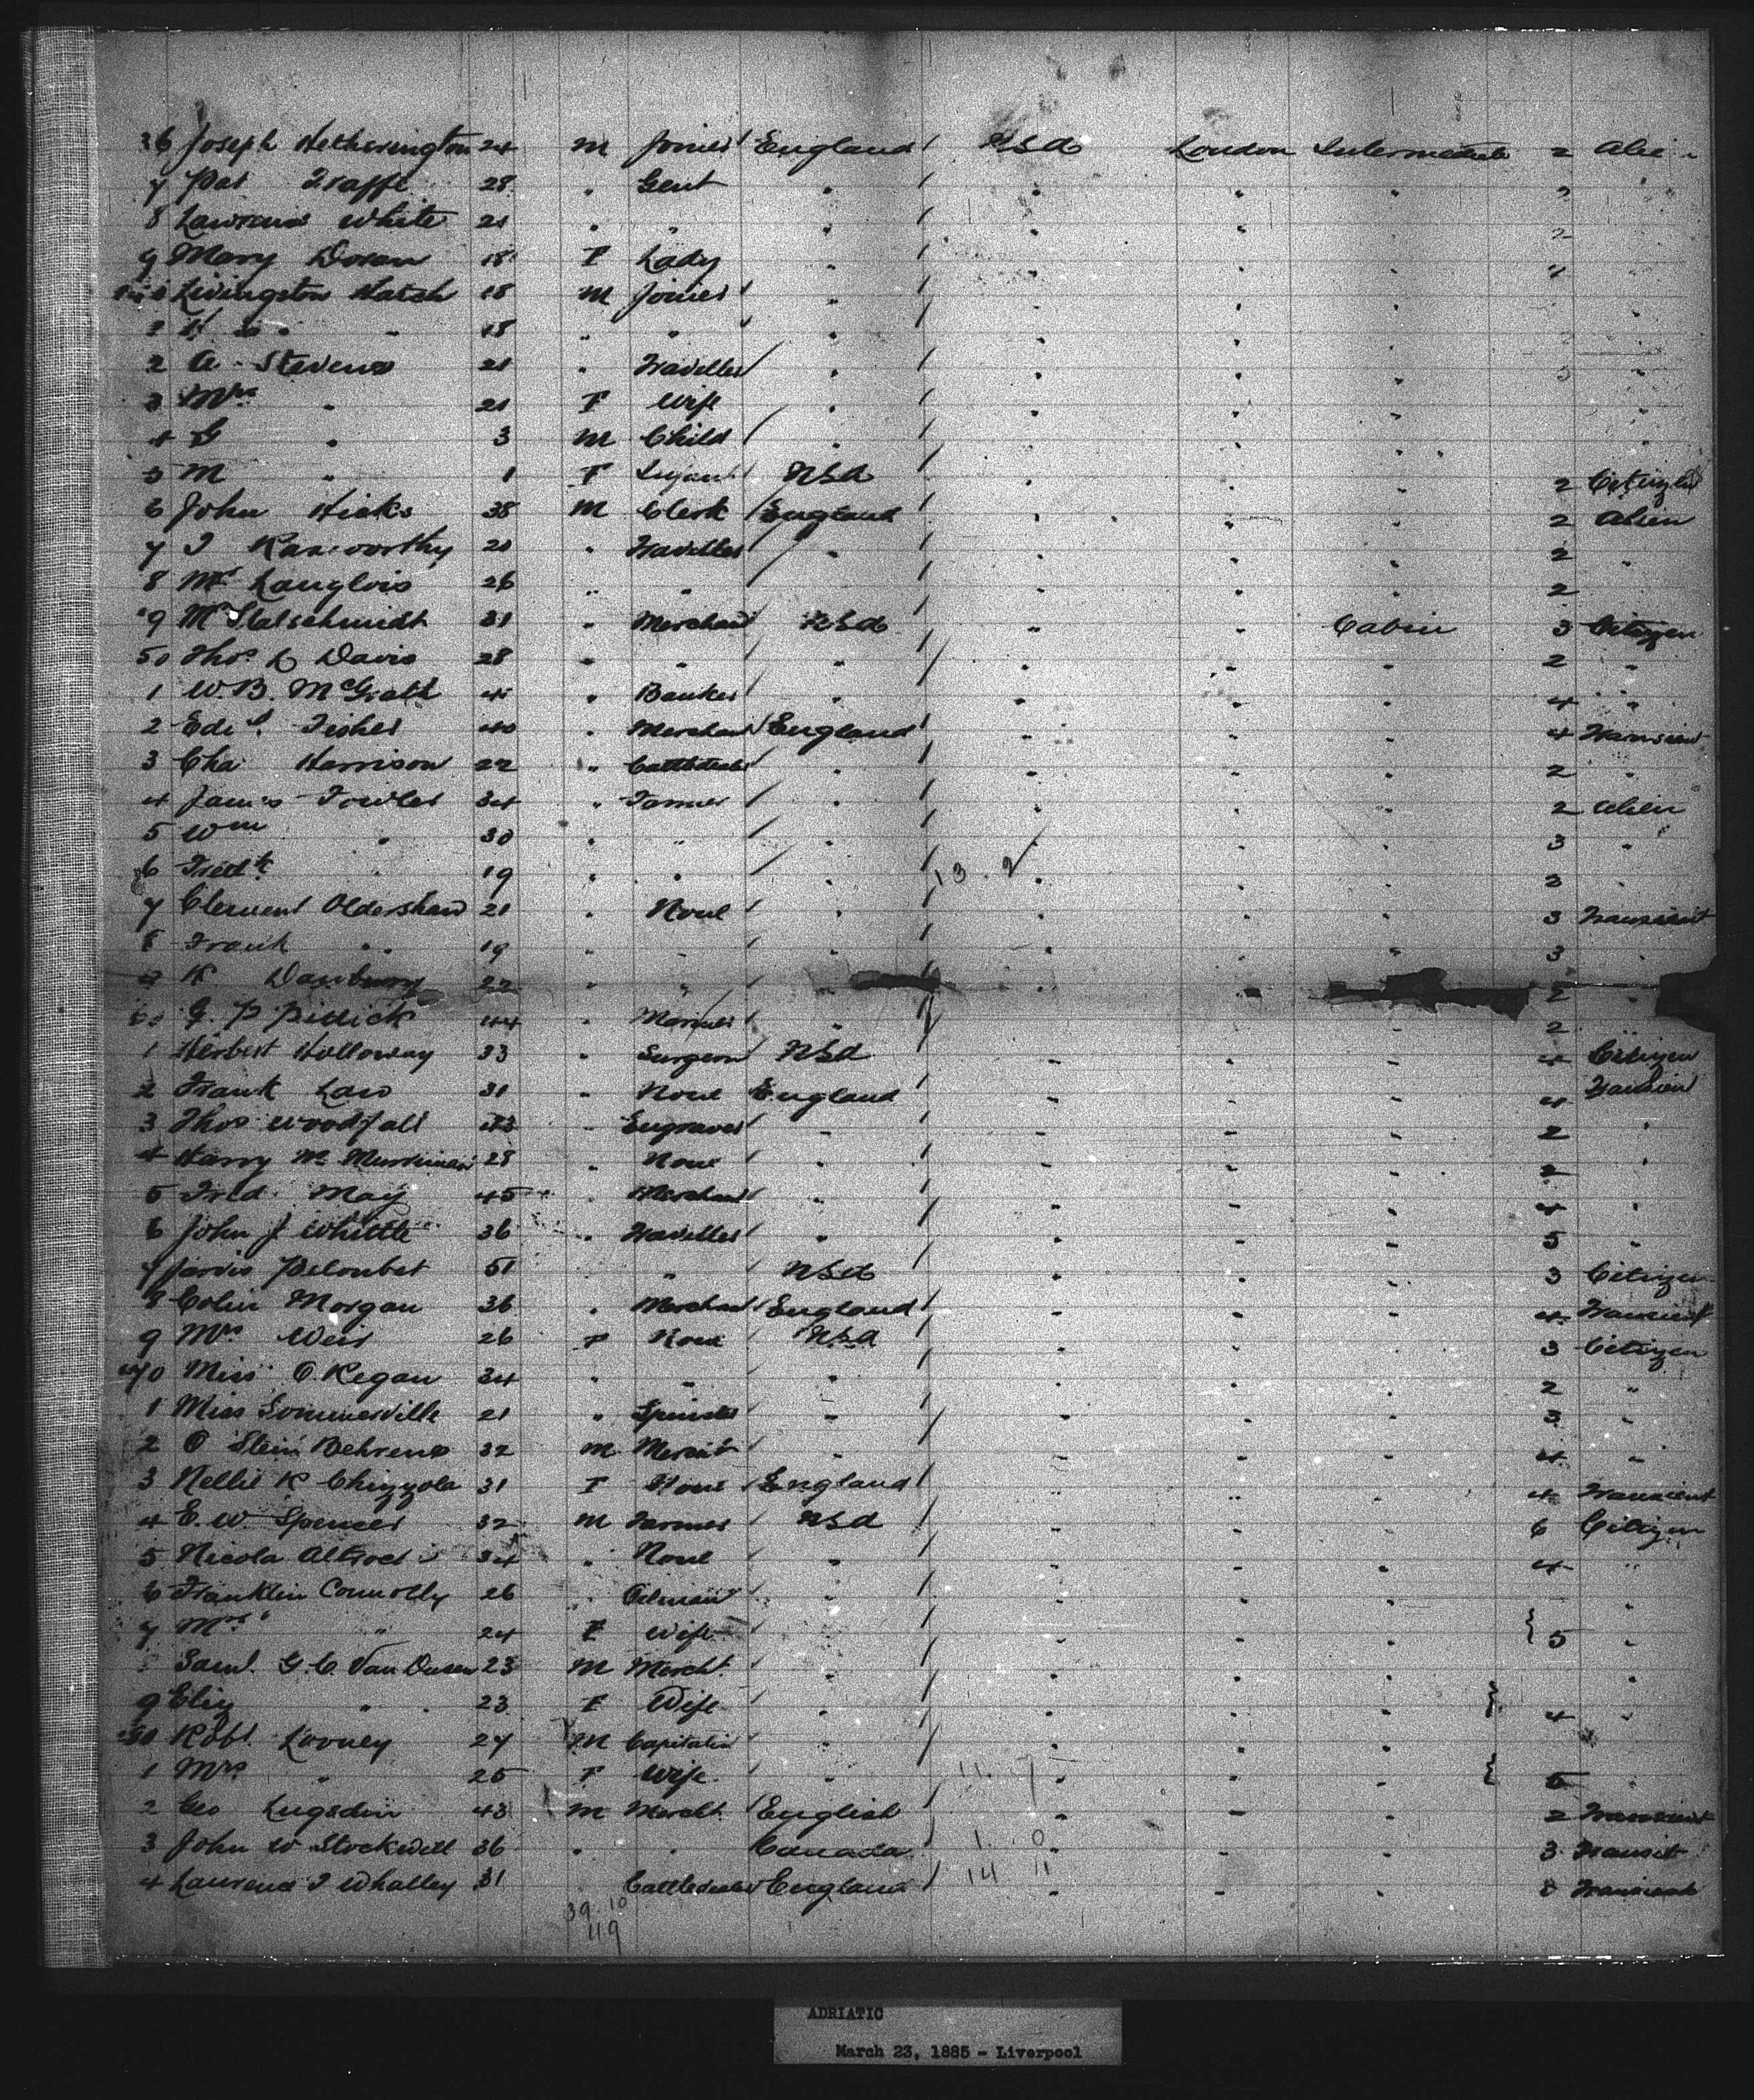 36 Joseph Hetherington 24 M Joiner England USA London Intermediate 2
7 Pat 28 " Gent " " " " 2 "
8 White 21 " " " " " " 2 "
9 Mary Doran 18 F Lady " " " " "
Livingston Hatch 18 M Joiner " " " " "
18 " " " " " " "
2 A Stevens 21 " Traveller " " " " 3 "
3 Mrs " 21 F Wife " " " " "
4 G " 3 M Child " " " " "
5 M " 1 F Infant USA " " " 2 Citizen
6 John Hicks 38 M Clerk England " " " 2 Alien
7 J 21 " Traveller " " " " 2 "
8 Mr Langlois 26 " " " " " " 2 "
9 Mr 31 " Merchant USA " " Cabin 3 Citizen
50 Thos Davis 28 " " " " " " 2 "
1 W B. McGrath " Banker " " " " 4 "
2 40 " Merchant England " " " 4 Transient
3 Cha Harrison 22 " Cattledealer " " " " 2 "
4 James Fowler 34 " Farmer " " " " 2 Alien
5 Wm " 30 " " " " " " 3 "
6 Fredk " 19 " " " 13 . 2 " " " 3 "
7 Clement Oldershaw 21 " None " " " " 3 Transient
8 Frank " 19 " " " " " " 3 "
K 22 " " " " " 2 "
G. P 44 " " " " " 2 "
1 Herbert Holloway 33 " Surgeon USA " " " 4 Citizen
2 Frank Law 31 " None England " " " 4 Transient
3 Thos Woodfall 43 " Engraver " " " " 2 "
4 Harry 28 " None " " " " 2 "
5 Fred. May 45 " Merchant " " " " 4 "
6 John J Whittle 36 " Traveller " " " " 5 "
7 Jarvis Peloubet 51 " " USA " " " 3 Citizen
8 Colin Morgan 36 " Merchant England " " " 4 Transient
9 Mrs Weir 26 F None USA " " " 3 Citizen
70 Miss O.Regan 34 " " " " " " 2 "
1 Miss Sommerville 21 " Spinster " " " " 3 "
2 O Stein Behrens 32 M Mercht " " " " 4 "
3 Nellie K Chizzola 31 F None England " " " 4 Transient
4 E. W. Spencer 32 M Farmer USA " " " 6 Citizen
5 Nicola 34 " None " " " " 4 "
6 Franklin Connolly 26 " Oilman " " " " "
7 Mrs " 24 F Wife " " " " } 5 "
Saml. G. C. Van Dusen 23 M Mercht " " " " "
9 Eliz " 23 F Wife " " " " } 4 "
80 Robt. Looney 27 M Capitalist " " " " "
1 Mrs " 25 F Wife " 11. 7 " " " } 5 "
2 Geo Lugsdin 43 M Mercht English " " " 2 Transient
3 John W Stockwell 36 " " Canada 1. 0 " " " 3 Transit
4 Laurence J Whalley 31 Cattledealer England 14 11 " " " 8 Transient
39. 10
49
ADRIATIC
March 23, 1885 - Liverpool